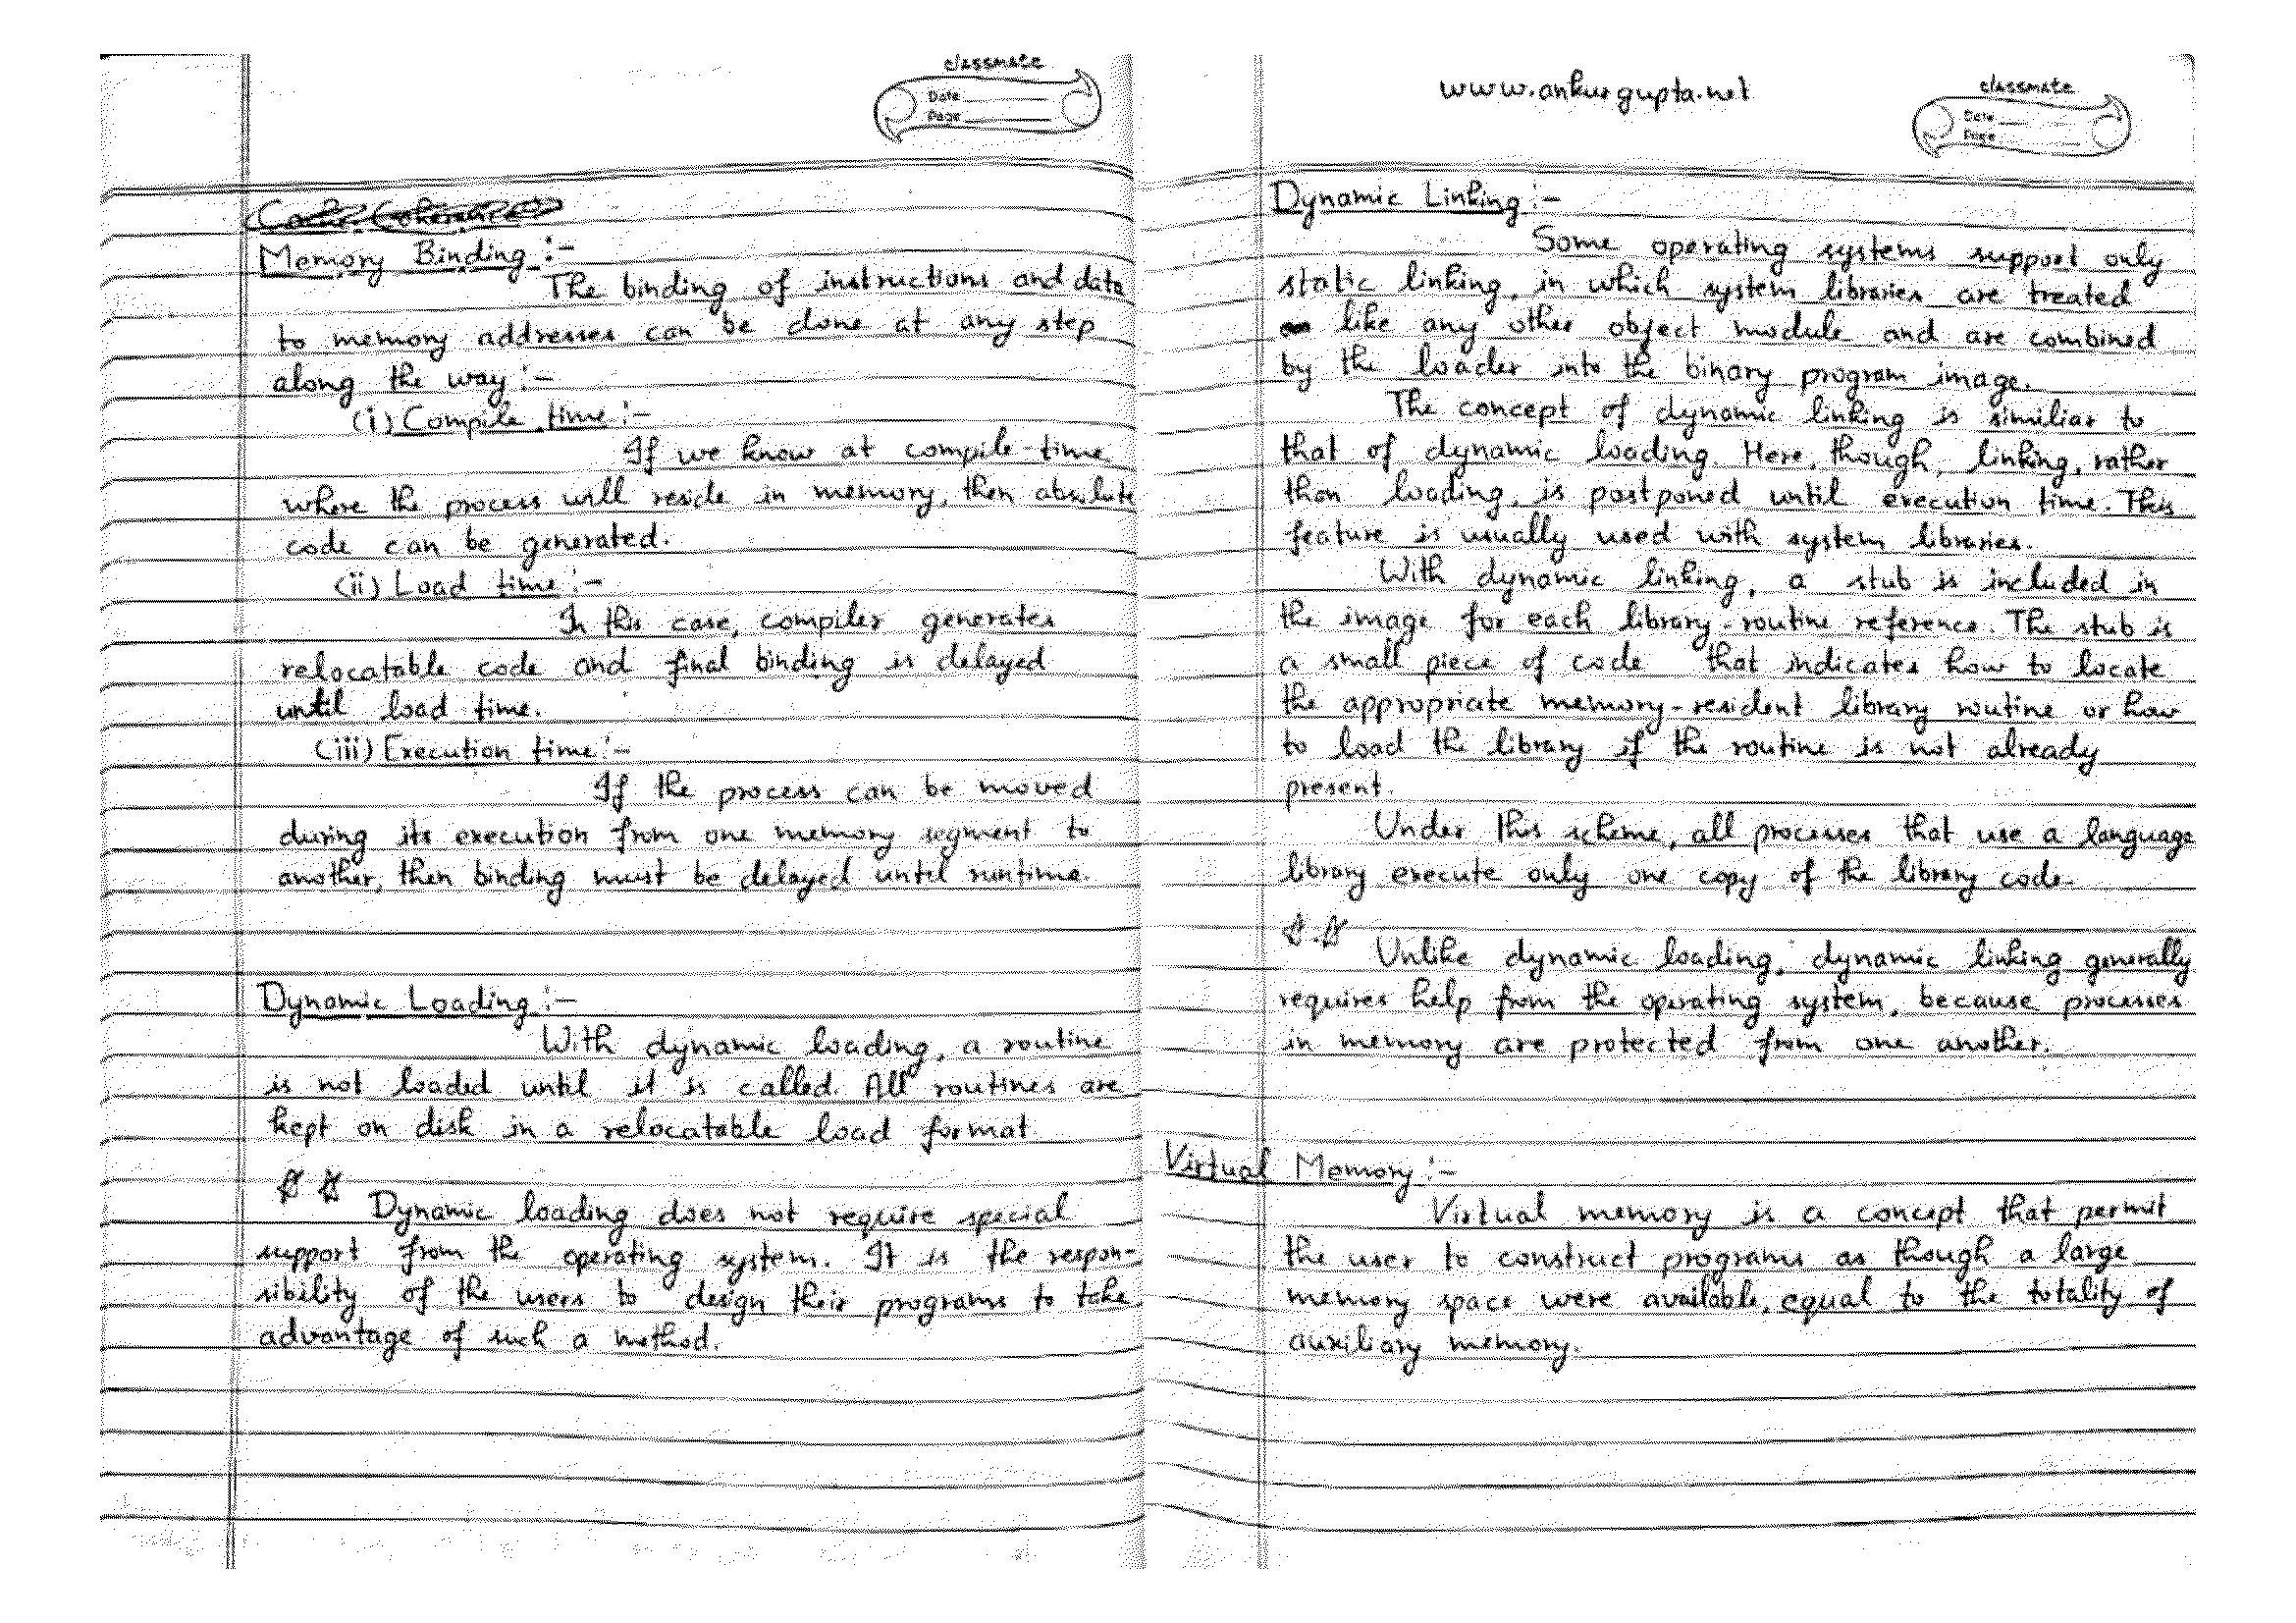 classmate
Date
Page
Memory Binding :-
The binding of instructions and data
to memory addresses can be done at any step
along the way :-
(i) Compile time :-
If we know at compile-time
where the process will reside in memory, then absolute
code can be generated.
(ii) Load time :-
In this case, compiler generates
relocatable code and final binding is delayed
until load time.
(iii) Execution time :-
If the process can be moved
during its execution from one memory segment to
another, then binding must be delayed until runtime.
Dynamic Loading :-
With dynamic loading, a routine
is not loaded until it is called. All routines are
kept on disk in a relocatable load format
Dynamic loading does not require special
support from the operating system. It is the respon-
sibility of the users to design their programs to take
advantage of such a method.
www.ankurgupta.net
classmate
Date
Page
Dynamic Linking :-
Some operating systems support only
static linking, in which system libraries are treated
like any other object module and are combined
by the loader into the binary program image.
The concept of dynamic linking is similiar to
that of dynamic loading. Here, though, linking, rather
than loading, is postponed until execution time. This
feature is usually used with system libraries.
With dynamic linking, a stub is included in
the image for each library-routine reference. The stub is
a small piece of code that indicates how to locate
the appropriate memory-resident library routine or how
to load the library if the routine is not already
present.
Under this scheme, all processes that use a language
library execute only one copy of the library code.
Unlike dynamic loading, dynamic linking generally
requires help from the operating system, because processes
in memory are protected from one another.
Virtual Memory :-
Virtual memory is a concept that permit
the user to construct programs as though a large
memory space were available, equal to the totality of
auxiliary memory.